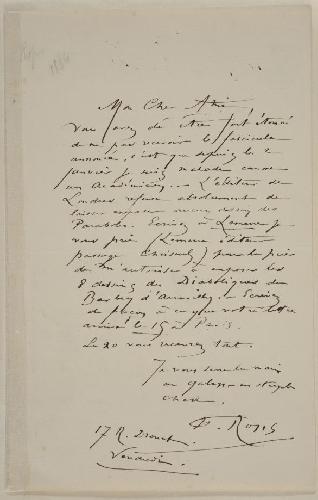 1886
Mon Cher Ami,
Vous avez dû être fort étonné
de ne pas recevoir le fascicule
annoncé, c'est que depuis le 2
Janvier je suis malade comme
un Académicien. — L'éditeur de
Londres refuse absolument de
laisser exposer aucun dessin des
Ecrivez à Lemerre je
vous prie (Lemerre éditeur
passage Choiseul) pour le prier
de m'autoriser à exposer les
8 dessins des Diaboliques de
Barbey d'Aurevilly. — Ecrivez
de façon à ce que votre lettre
arrive le 15 à Paris.
Le 20 vous recevrez tout.
Je vous serre la main
F. Rops
17 R.
Vendredi